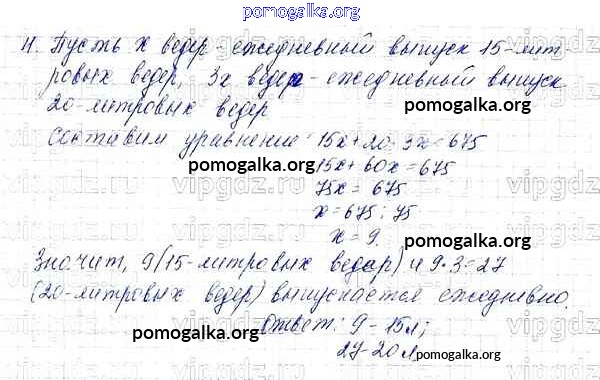 pomogalka.org
4. Пусть x ведер - ежедневный выпуск 15-лит-
ровых ведер, 3x ведер - ежедневный выпуск
20-литровых ведер
pomogalka.org
Составим уравнение: 15x+20·3x=675
pomogalka.org
15x+60x=675
vipgdz.ru vipgdz.ru vipgdz.ru
75x = 675
x = 675 : 75
pomogalka.org
x = 9.
Значит, 9 (15-литровых ведер) и 9·3=27
(20-литровых ведер) выпускается ежедневно.
pomogalka.org
Ответ: 9 - 15л;
27-20л
pomogalka.org